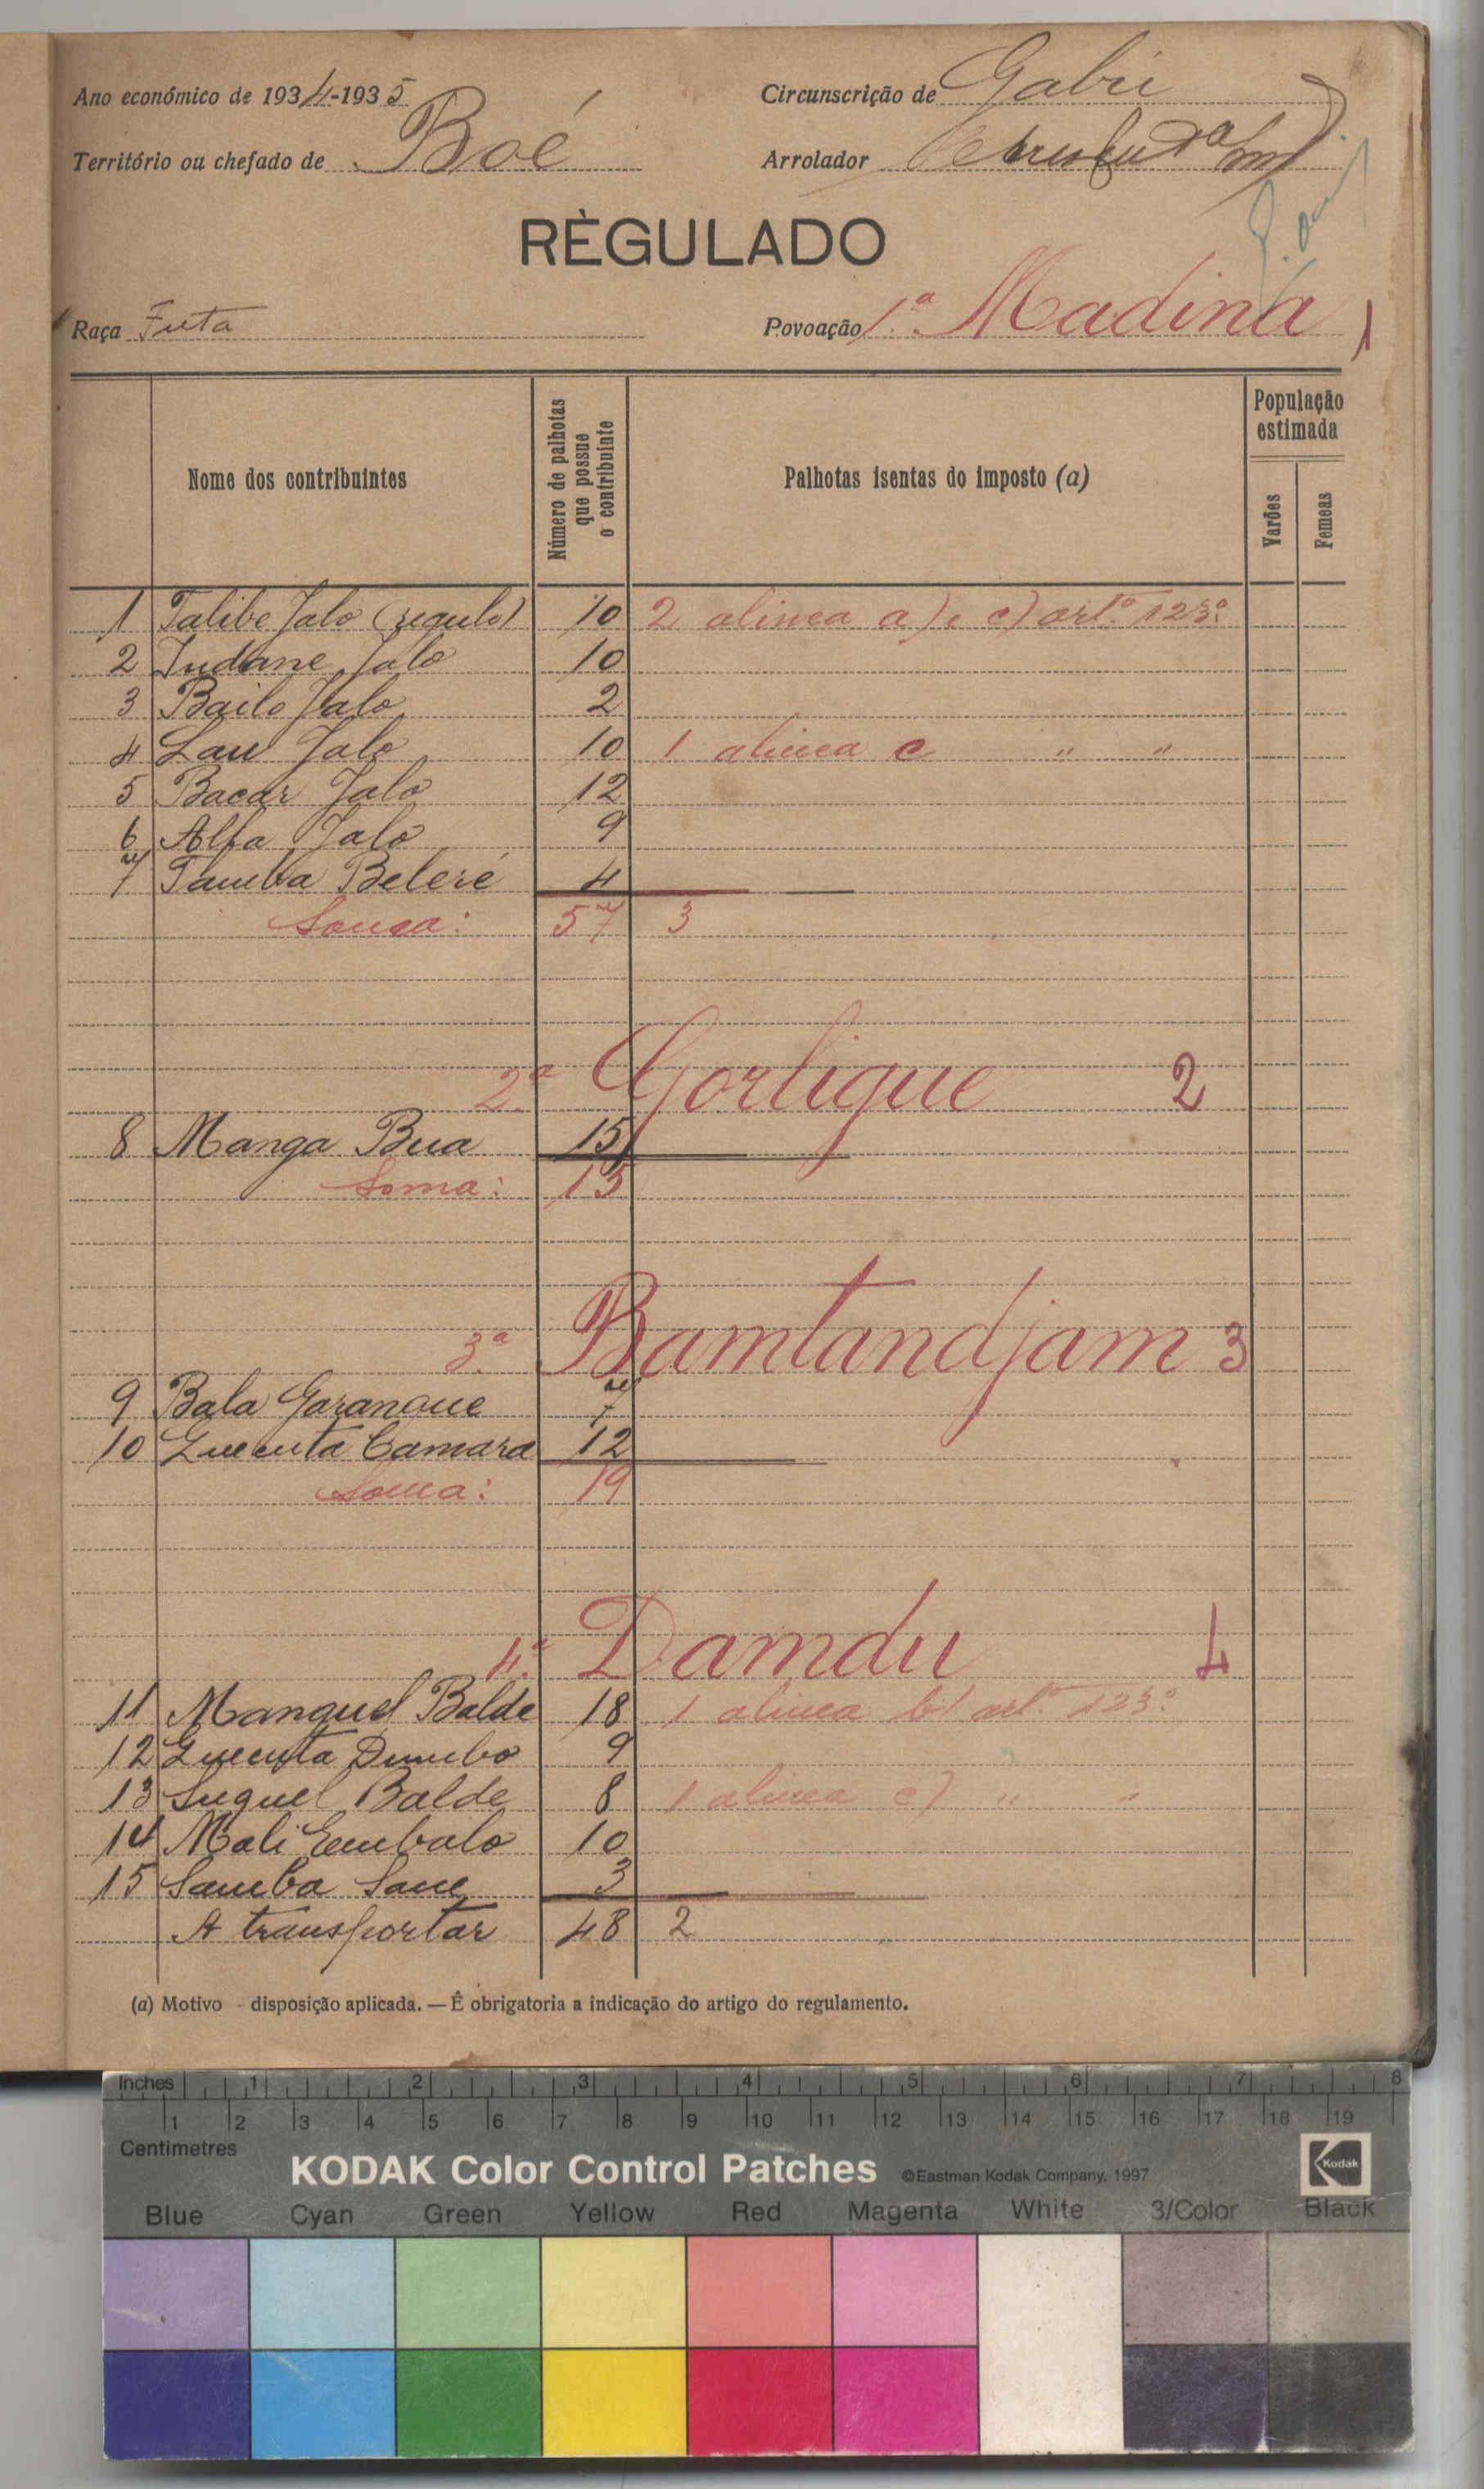 Ano económico de 1934-1935
Circunscrição de Gabú
Território ou chefado de Boé
Arrolador
RÈGULADO
Raça Futa
Povoação 1.ª Madina 1
Nome dos contribuintes
Número de palhotas que possue o contribuinte
Palhotas isentas do imposto (a)
População estimada
Varões
Femeas
1 Talibe Jalo (regulo) 10 2 alinea a) e c) art.º 123º
2 Indane Jalo 10
3 Bailo Jalo 2
4 Lau Jalo 10 1 alinea c " "
5 Bacar Jalo 12
6 Alfa Jalo 9
7 Tamba Beleré 4
Soma: 57 3
2ª Gorligue 2
8 Manga Bua 15
Soma: 15
3.ª Bamtandjam 3
9 Bala Garanque 7
10 Quecuta Camara 12
Soma: 19
4.ª Damdu 4
11 Manguel Balde 18 1 alinea b) art.º 123º
12 Quecuta Dumbo 9
13 Suguel Balde 8 1 alinea c) " "
14 Mali Embalo 10
15 Samba Sane 3
A transportar 48 2
(a) Motivo - disposição aplicada. — É obrigatoria a indicação do artigo do regulamento.
Inches 1 2 3 4 5 6 7 8
1 2 3 4 5 6 7 8 9 10 11 12 13 14 15 16 17 18 19
Centimetres
KODAK Color Control Patches ©Eastman Kodak Company, 1997 Kodak
Blue Cyan Green Yellow Red Magenta White 3/Color Black